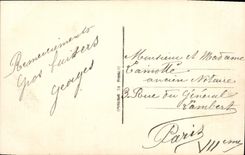 Remerciements
Gros baisers
Georges
Monsieur et Madame
Lamotte
ancien Notaire
2 Rue du Général
Lambert
Paris
VIIeme